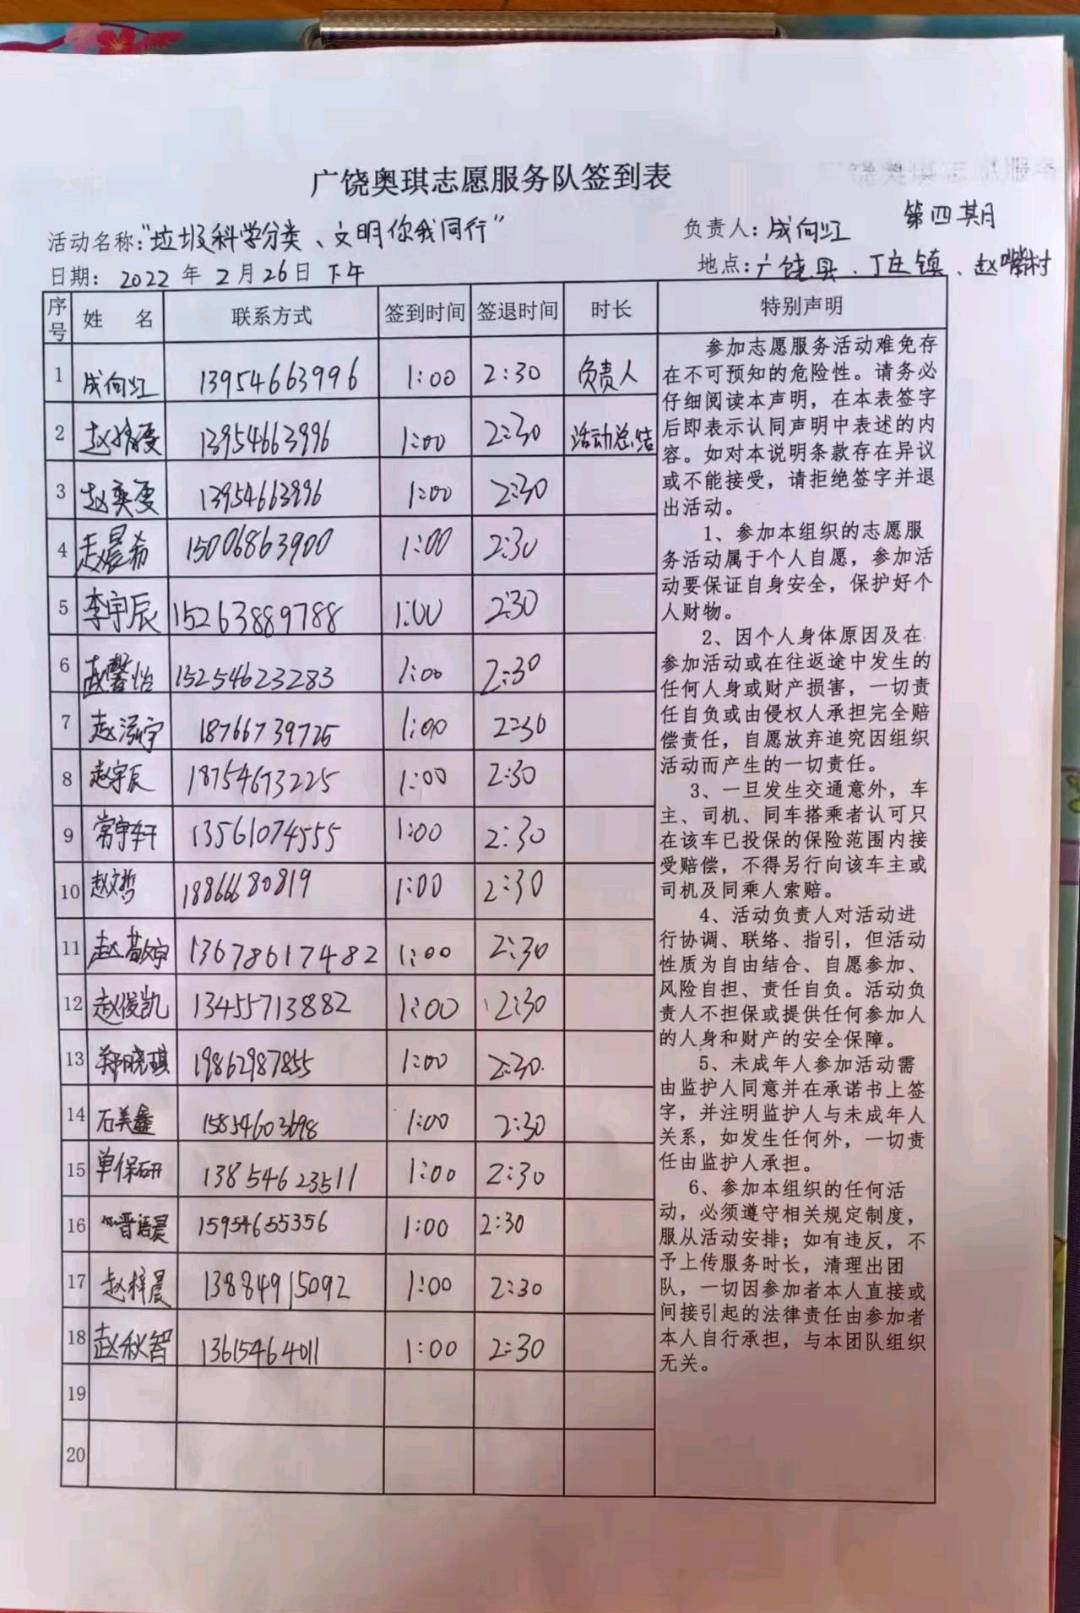 广饶奥琪志愿服务队签到表
第四期
活动名称:"垃圾科学分类、文明你我同行" 负责人:成向红
日期: 2022 年 2月26日 下午 地点:广饶县、丁庄镇、赵嘴村
序号 姓 名 联系方式 签到时间 签退时间 时长 特别声明
1 成向红 13954663996 1:00 2:30 负责人
2 13954663996 1:00 2:30 活动总结
3 赵奕雯 13954663996 1:00 2:30
4 赵晨希 15006863900 1:00 2:30
5 李宇辰 15263889788 1:00 2:30
6 赵馨怡 15254623283 1:00 2:30
7 赵泓宇 18766739725 1:00 2:30
8 赵宇辰 18754673225 1:00 2:30
9 常宇轩 13561074555 1:00 2:30
10 赵文哲 18866680819 1:00 2:30
11 13678617482 1:00 2:30
12 赵俊凯 13455713882 1:00 2:30
13 郑晓琪 19862987855 1:00 2:30
14 石美鑫 15854603698 1:00 2:30
15 单保研 13854623511 1:00 2:30
16 晋语晨 15954655356 1:00 2:30
17 赵梓晨 13884915092 1:00 2:30
18 赵秋智 13615464011 1:00 2:30
19
20
参加志愿服务活动难免存
在不可预知的危险性。请务必
仔细阅读本声明，在本表签字
后即表示认同声明中表述的内
容。如对本说明条款存在异议
或不能接受，请拒绝签字并退
出活动。
1、参加本组织的志愿服
务活动属于个人自愿，参加活
动要保证自身安全，保护好个
人财物。
2、因个人身体原因及在
参加活动或在往返途中发生的
任何人身或财产损害，一切责
任自负或由侵权人承担完全赔
偿责任，自愿放弃追究因组织
活动而产生的一切责任。
3、一旦发生交通意外，车
主、司机、同车搭乘者认可只
在该车已投保的保险范围内接
受赔偿，不得另行向该车主或
司机及同乘人索赔。
4、活动负责人对活动进
行协调、联络、指引，但活动
性质为自由结合、自愿参加、
风险自担、责任自负。活动负
责人不担保或提供任何参加人
的人身和财产的安全保障。
5、未成年人参加活动需
由监护人同意并在承诺书上签
字，并注明监护人与未成年人
关系，如发生任何外，一切责
任由监护人承担。
6、参加本组织的任何活
动，必须遵守相关规定制度，
服从活动安排；如有违反，不
予上传服务时长，清理出团
队，一切因参加者本人直接或
间接引起的法律责任由参加者
本人自行承担，与本团队组织
无关。